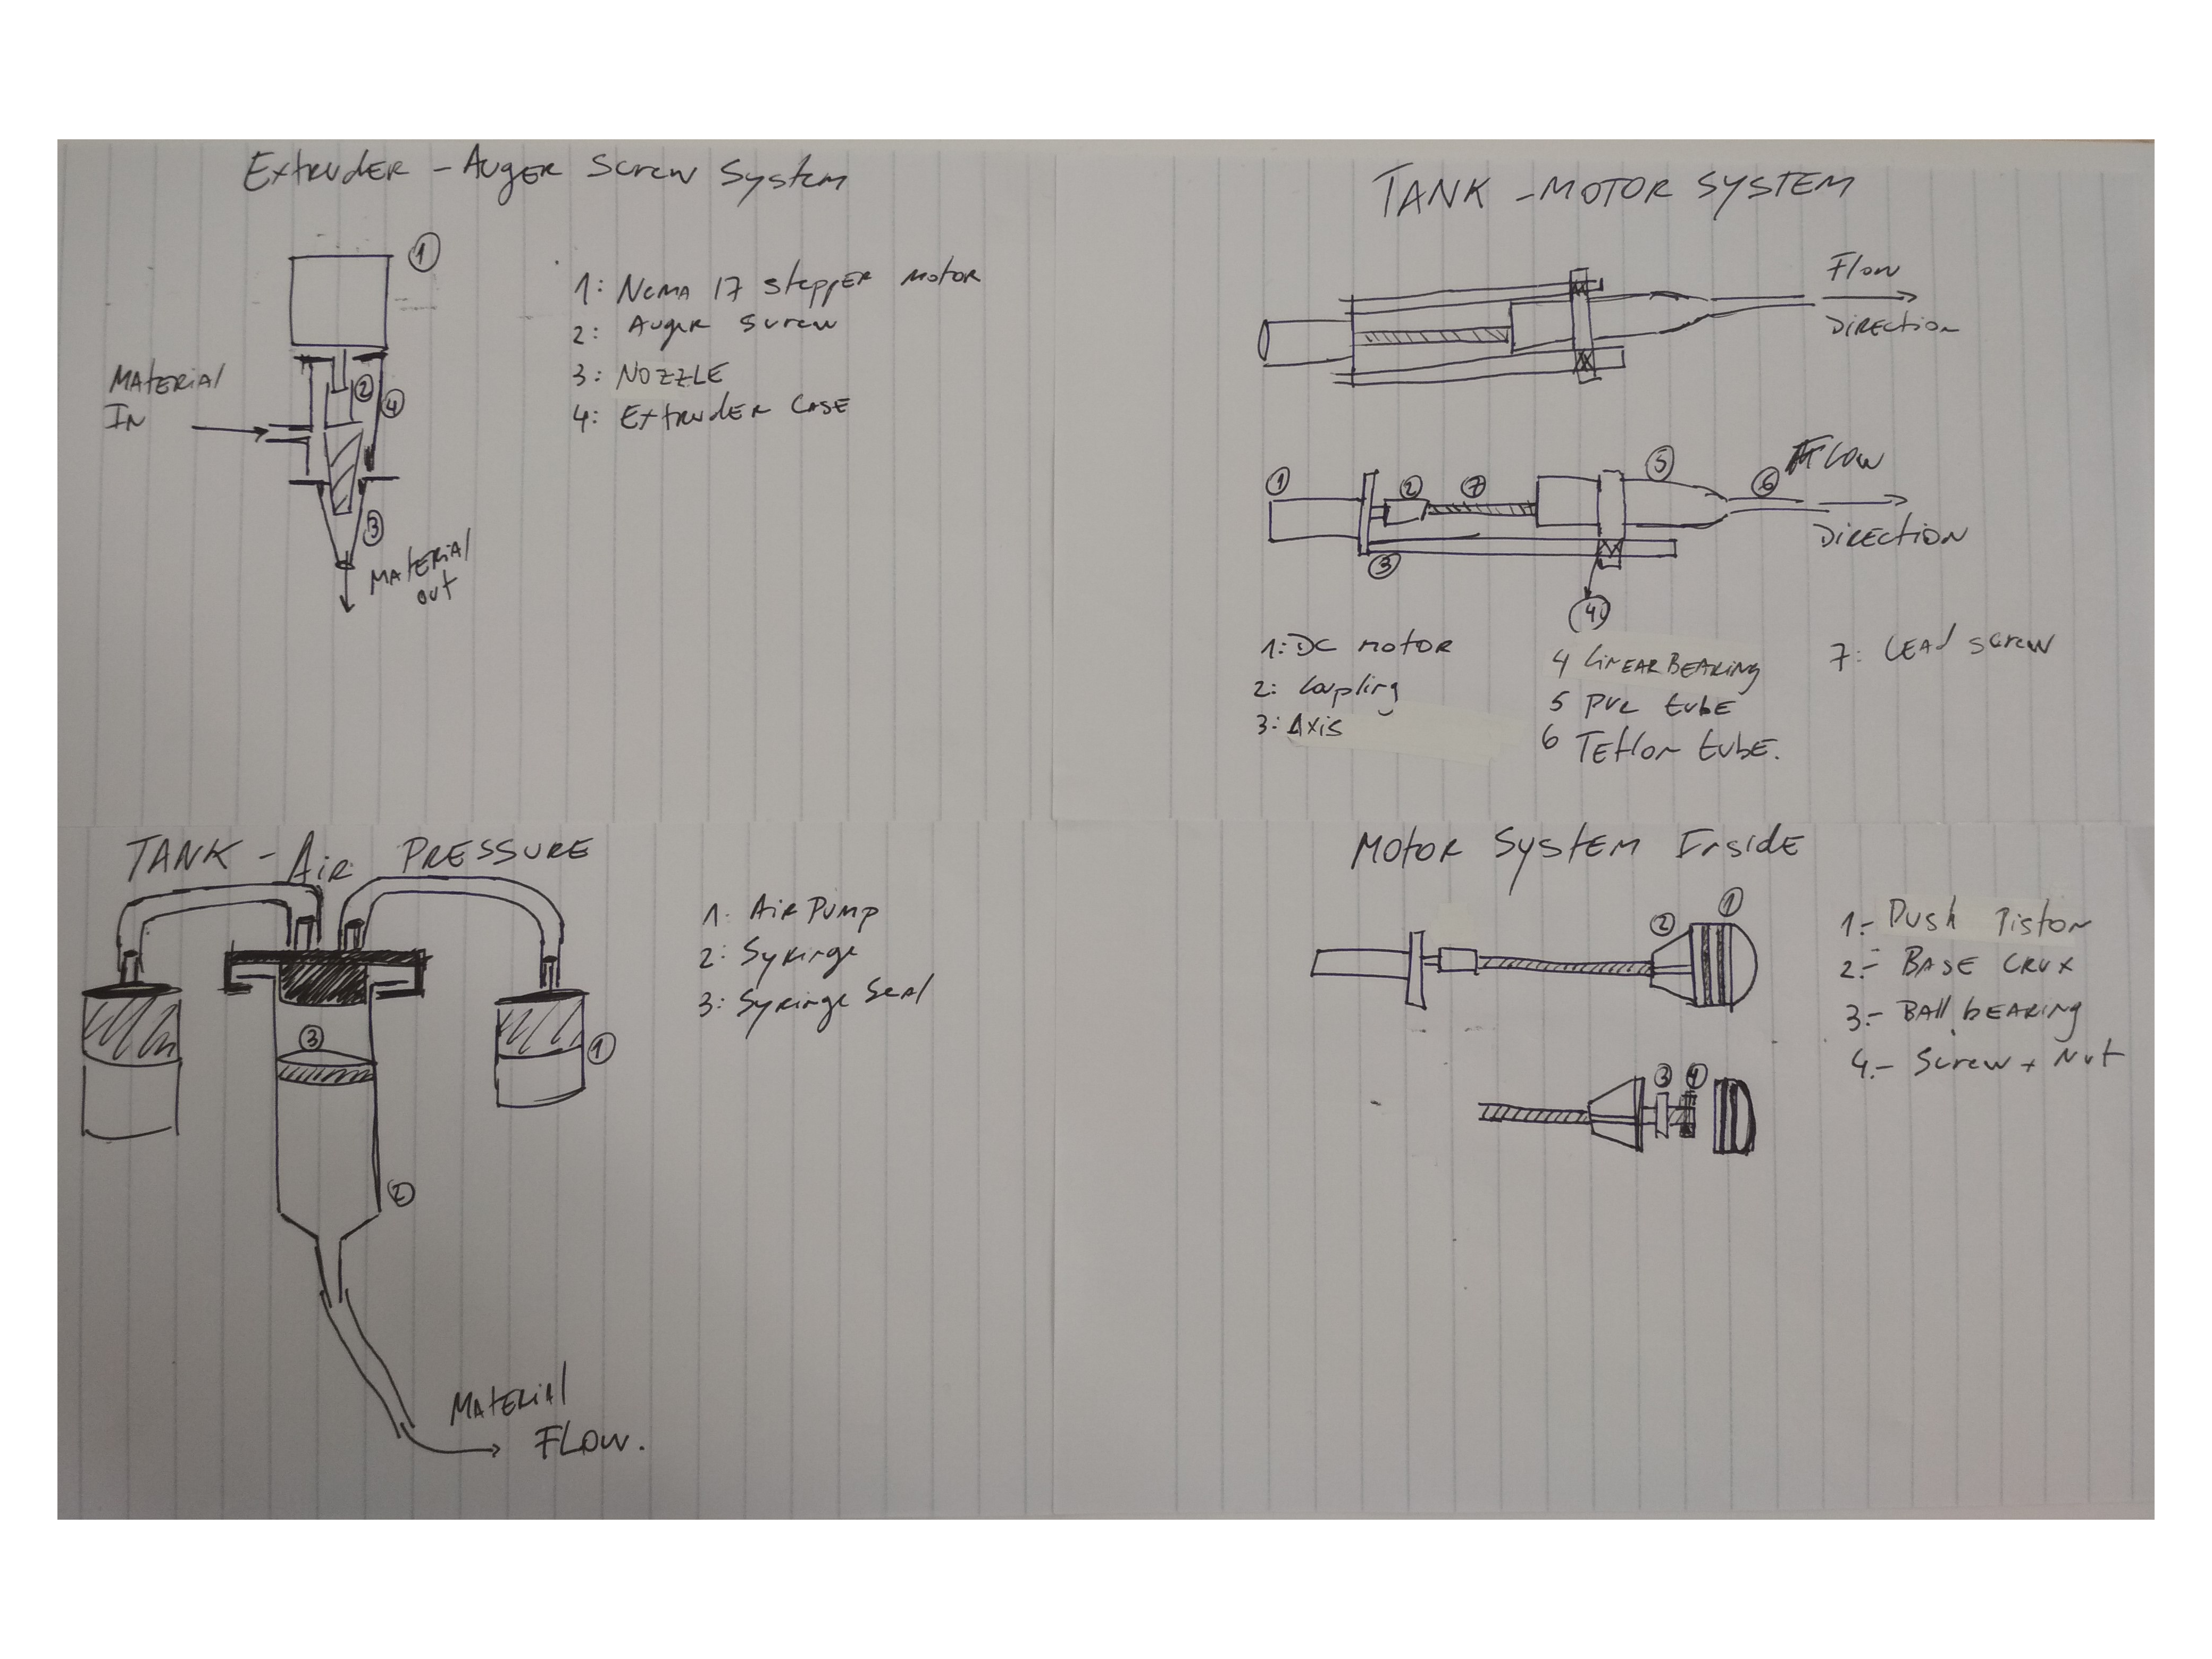 Extruder - Auger Screw System
1
1: Nema 17 stepper motor
2: Auger screw
3: Nozzle
4: Extruder Case
Material
In
2
4
3
Material
out
TANK - MOTOR SYSTEM
Flow
Direction
1
2
7
5
6
Flow
Direction
3
4
1: DC motor
2: Coupling
3: Axis
4 Linear Bearing
5 PVC tube
6 Teflon tube.
7: Lead screw
TANK - Air PRESSURE
1. Air Pump
2: Syringe
3: Syringe Seal
3
1
2
Material
Flow.
Motor System Inside
2
1
1.- Push Piston
2.- Base crux
3.- Ball bearing
4.- Screw + Nut
3
4